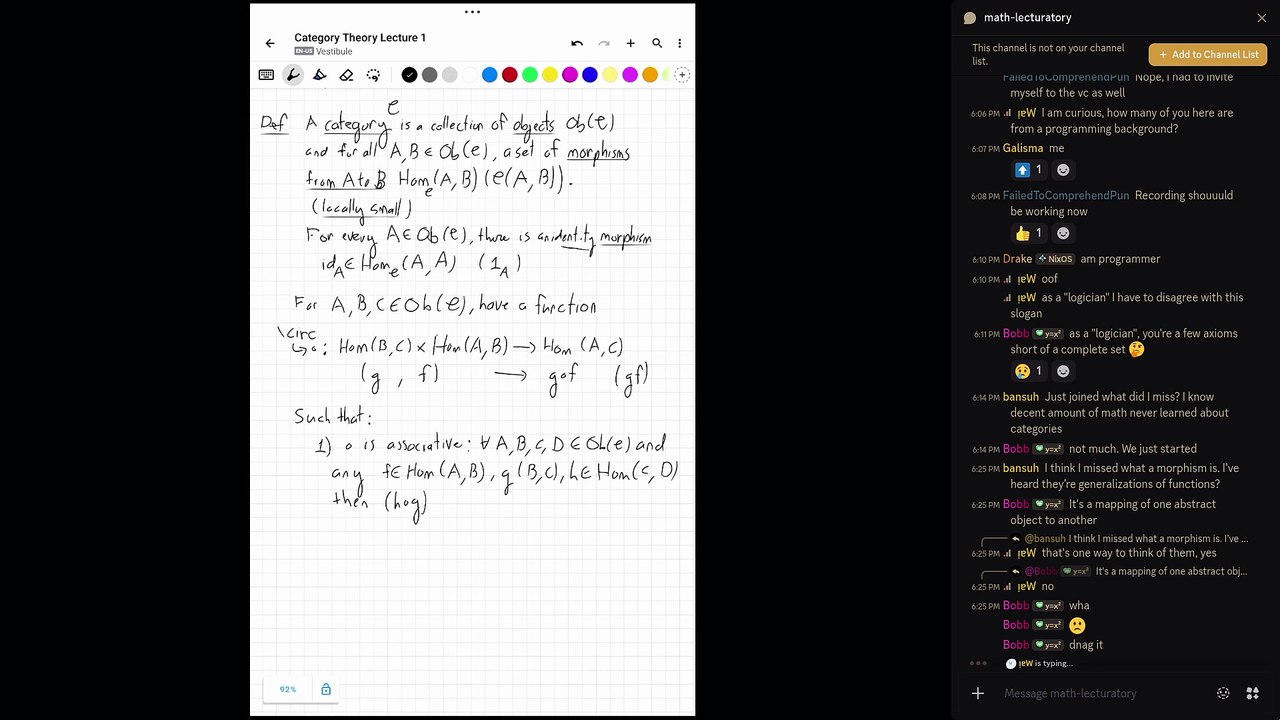 Category Theory Lecture 1
EN-US Vestibule
Def A category C is a collection of objects Ob(C)
and for all A, B ∈ Ob(C), a set of morphisms
from A to B Hom_C(A, B) (C(A, B)).
(locally small)
For every A ∈ Ob(C), there is an identity morphism
id_A ∈ Hom_C(A, A) (1_A)
For A, B, C ∈ Ob(C), have a function
\circ
↳ ∘ : Hom(B, C) × Hom(A, B) → Hom (A, C)
(g , f) → g∘f (gf)
Such that:
1) ∘ is associative: ∀ A, B, C, D ∈ Ob(C) and
any f ∈ Hom(A, B), g (B, C), h ∈ Hom(C, D)
then (h∘g)
92%
math-lecturatory
This channel is not on your channel
list.
+ Add to Channel List
FailedToComprehendPun Nope, I had to invite
myself to the vc as well
6:06 PM ɟɐW I am curious, how many of you here are
from a programming background?
6:07 PM Galisma me
1
6:08 PM FailedToComprehendPun Recording shouuuld
be working now
1
6:10 PM Drake NixOS am programmer
6:10 PM oof
as a "logician" I have to disagree with this
slogan
6:11 PM Bobb y=x² as a "logician", you're a few axioms
short of a complete set 🤔
1
6:14 PM bansuh Just joined what did I miss? I know
decent amount of math never learned about
categories
6:14 PM Bobb y=x² not much. We just started
6:25 PM bansuh I think I missed what a morphism is. I've
heard they're generalizations of functions?
6:25 PM Bobb y=x² It's a mapping of one abstract
object to another
@bansuh I think I missed what a morphism is. I've ...
6:25 PM that's one way to think of them, yes
@Bobb y=x² It's a mapping of one abstract obj...
6:25 PM no
6:25 PM Bobb y=x² wha
Bobb y=x² 🙁
Bobb y=x² dnag it
is typing...
Message math-lecturatory